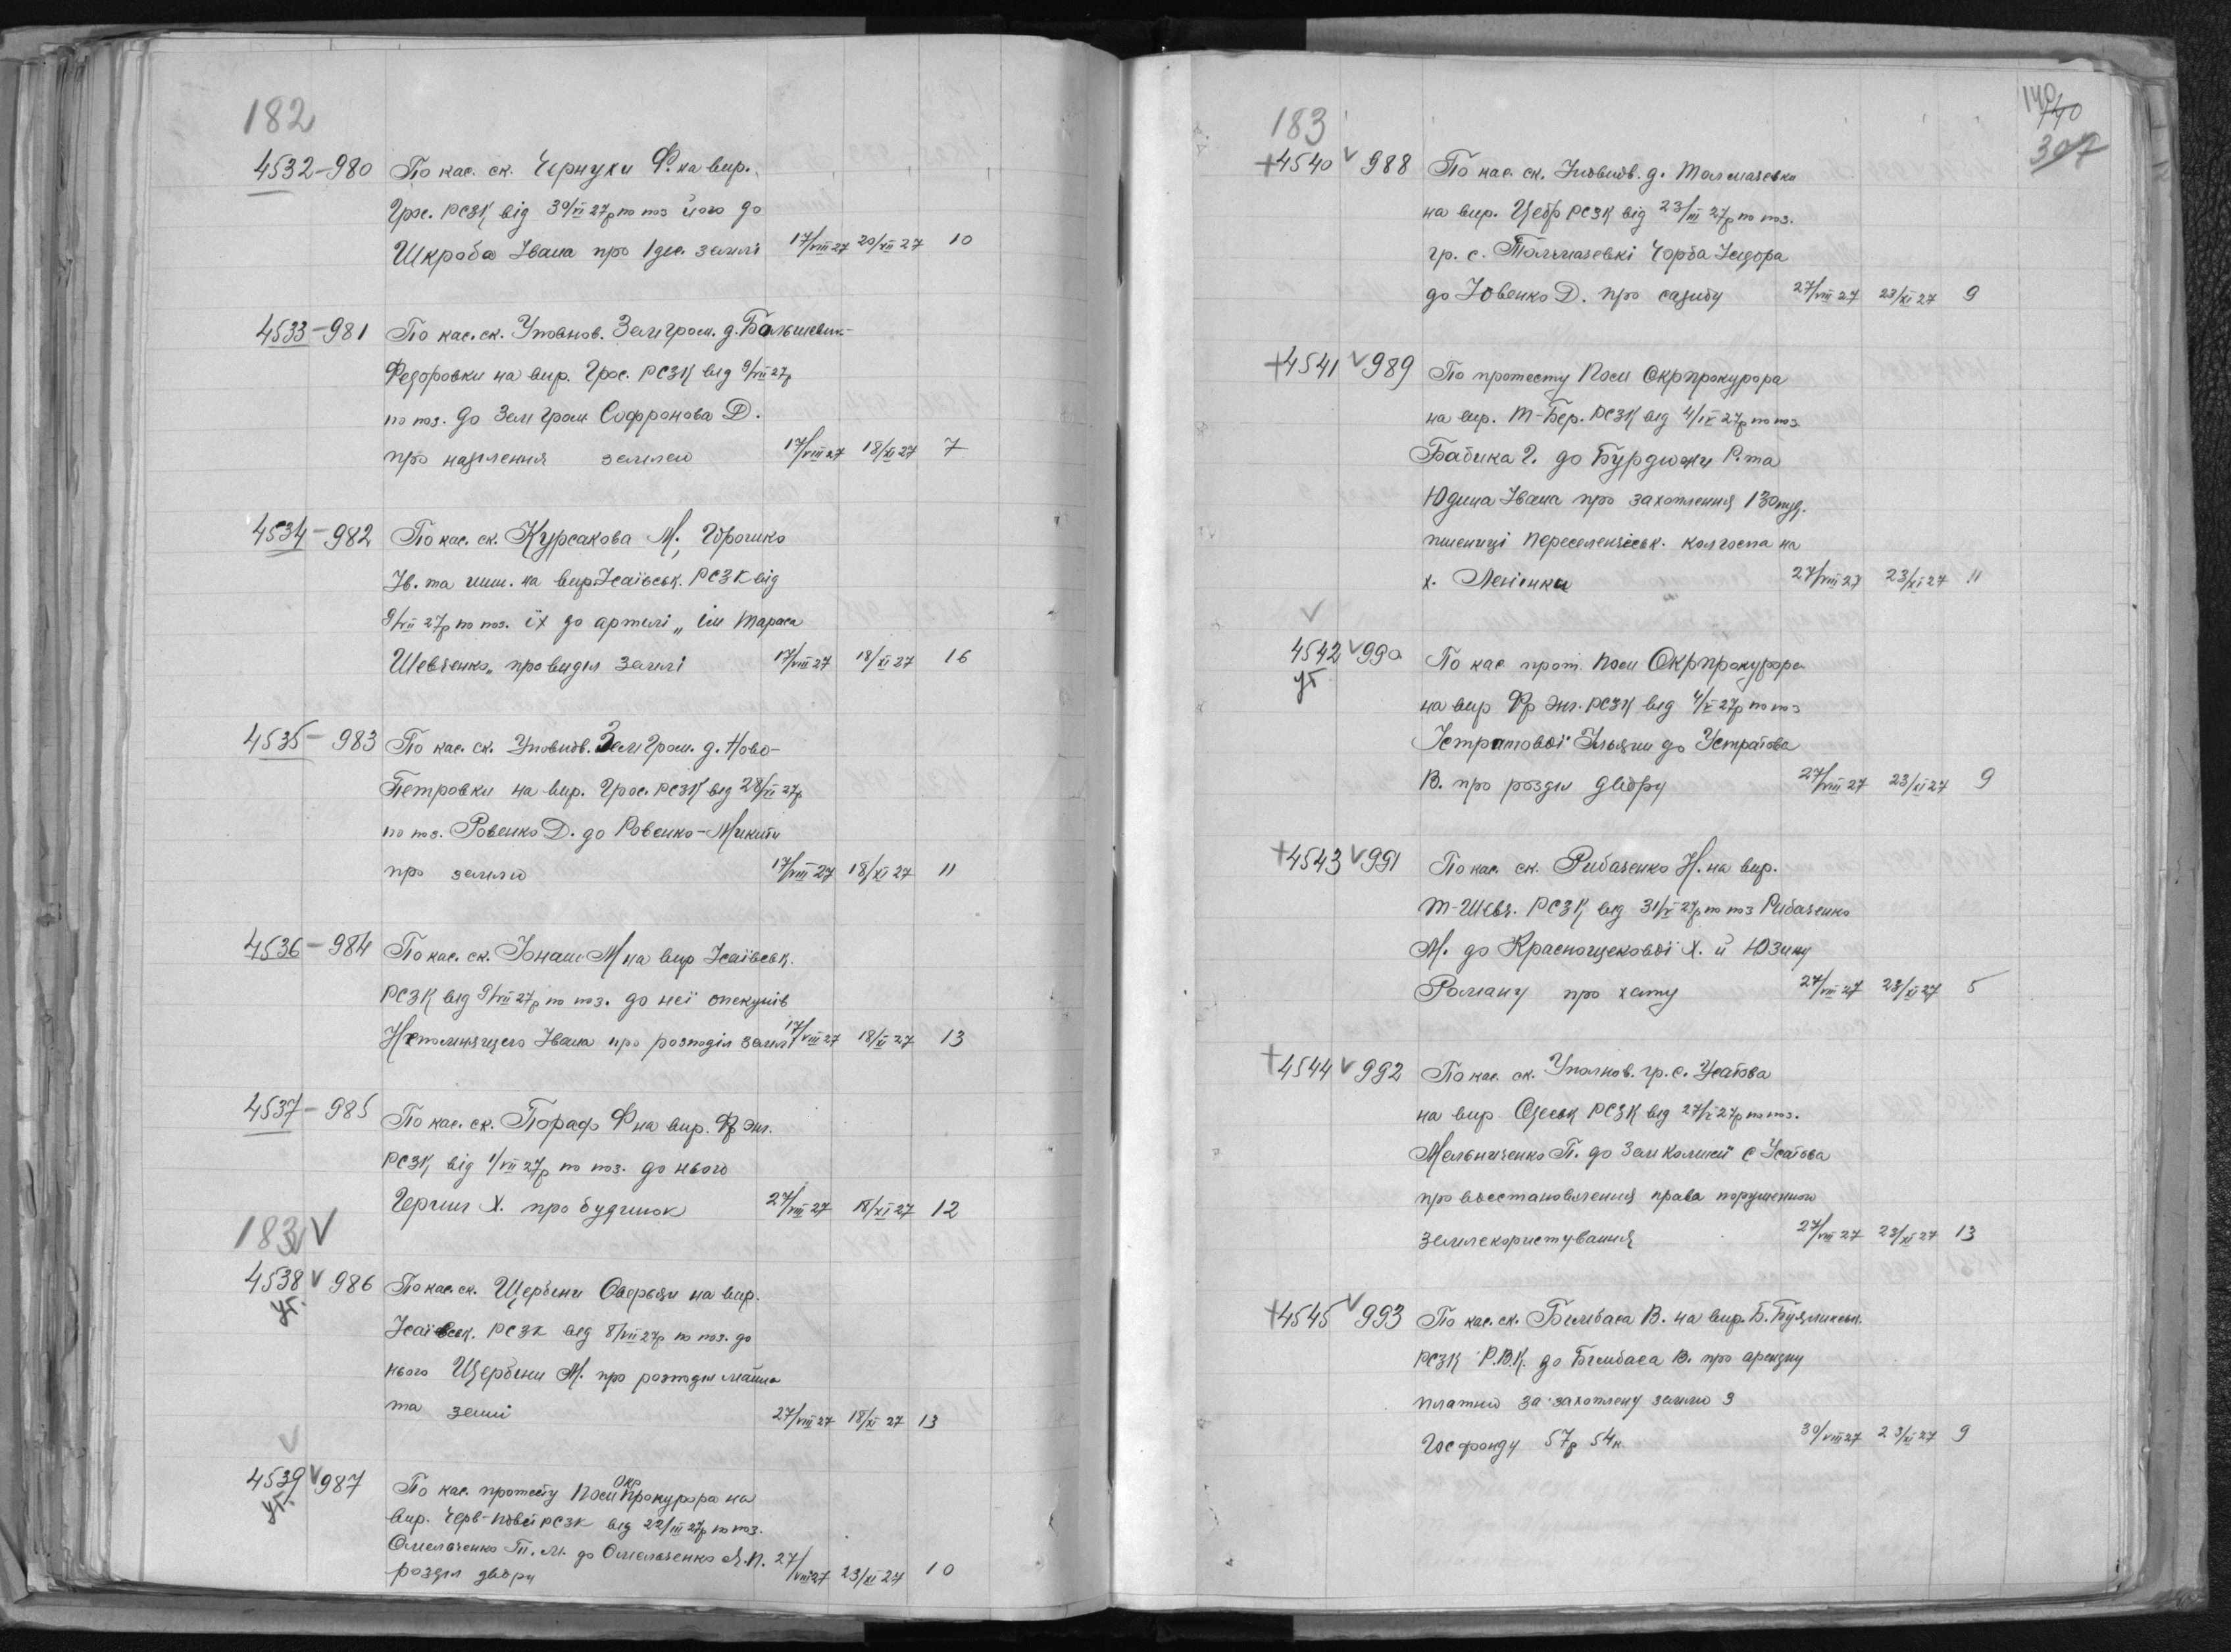 182
4532-980 По кас. ск. Чернухи Ф. на вир.
Грос. РСЗК від 30/VI 27р по поз його до
Шкроба Івана про 1 дес. землі 17/VIII 27 20/XII 27 10
4533-981 По кас. ск. Уповнов. Земгром. д. Большевик-
Федоровки на вир. Грос. РСЗК від 9/VII 27р
по поз. до Зем Гром Софронова Д.
про наділення землею 17/VIII 27 18/XI 27 7
4534-982 По кас. ск. Курсакова М.,
Ів. та инш. на вир. Ісаівськ. РСЗК від
9/VII 27р по поз. їх до артилі „ ім Тараса
Шевченко„ про виділ землі 17/VIII 27 18/XI 27 16
4535-983 По кас. ск. Уповнов. Зем Гром. д. Ново-
Петровки на вир. Грос. РСЗК від 28/VI 27р
по поз. Ровенко Д. до Ровенко-Микити
про землю 17/VIII 27 18/XI 27 11
4536-984 По кас. ск. Іонаш М на вир Ісаівськ.
РСЗК від 9/VII 27р по поз. до неї опекунів
Непомнящего Івана про розподіл землі 17/VIII 27 18/XI 27 13
4537-985 По кас. ск. Пораф Ф на вир. Фр Энг.
РСЗК від 1/VII 27р по поз. до нього
Герлиг Х. про будинок 27/VIII 27 18/XI 27 12
183 V
4538 V 986 По кас. ск. Щербини Оверьяи на вир.
уг. Ісаівськ. РСЗК від 8/VII 27р по поз. до
нього Щербини М. про розподіл майна
та землі 27/VIII 27 18/XI 27 13
V
4539 V 987 По кас. протесту Пом Окр Прокурора на
уг. вир. Черв-Повст РСЗК від 22/III 27р по поз.
Омельченко Т. М. до Омельченко Я. П. 27/VIII 27 23/XI 27 10
розділ двору
140
140
307
183
+4540 V 988 По кас. ск. Уповнов. д. Толмачевки
на вир. Цебр РСЗК від 23/III 27р по поз.
гр. с. Толмачевкі Чорба Ісидора
до Іовенко Д. про садибу 27/VIII 27 23/XI 27 9
+4541 V 989 По протесту Пом Окрпрокурора
на вир. Т-Бер. РСЗК від 4/IV 27р по поз
Бабика Г. до Бурдюжи Р. та
Юдина Івана про захоплення 130 пуд.
пшениці переселенческ. колгоспа на
х. 27/VIII 27 23/XI 27 11
V
4542 V 990 По кас прот. Пом Окрпрокурора
уг на вир Фр Энг. РСЗК від 4/V 27р по поз
Істратової Ульяни до Устратова
В. про розділ двору 27/VIII 27 23/XI 27 9
+4543 V 991 По кас. ск. Рибаченко Н. на вир.
Т-Шевч. РСЗК від 31/V 27р по поз Рибаченко
М. до Краснощекової Х. й Юзину
Роману про хату 27/VIII 27 23/XI 27 5
+4544 V 992 По кас. ск. Уполнов. гр. с. Усатова
на вир Одеськ РСЗК від 27/V 27р по поз.
Мельниченко П. до Зем комисії с Усатова
про восстановлення права порушенного
землекористування 27/VIII 27 23/XI 27 13
+4545 V 993 По кас. ск. Бимбаса В. на вир. Б. Буялинськ.
РСЗК Р.В.К. до Бимбаса В. про арендну
платню за захоплену землю з
Госфонду 57р 54к. 30/VIII 27 23/XI 27 9